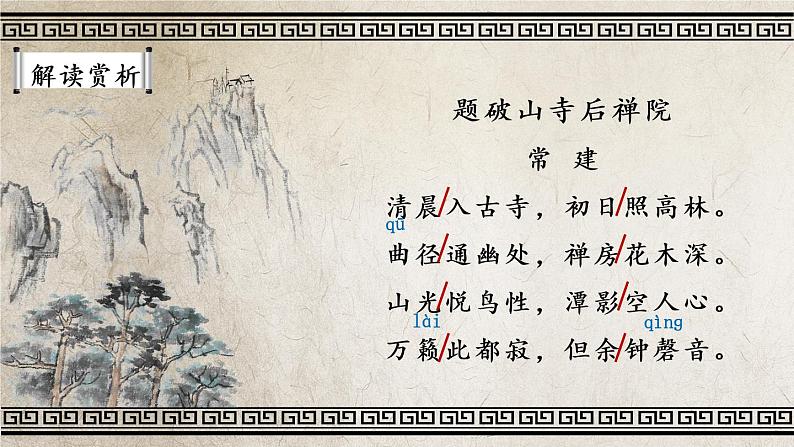 解读赏析
题破山寺后禅院
常 建
清晨/入古寺，初日/照高林。
qū
曲径/通幽处，禅房/花木深。
山光/悦鸟性，潭影/空人心。
lài qìng
万籁/此都寂，但余/钟磬音。